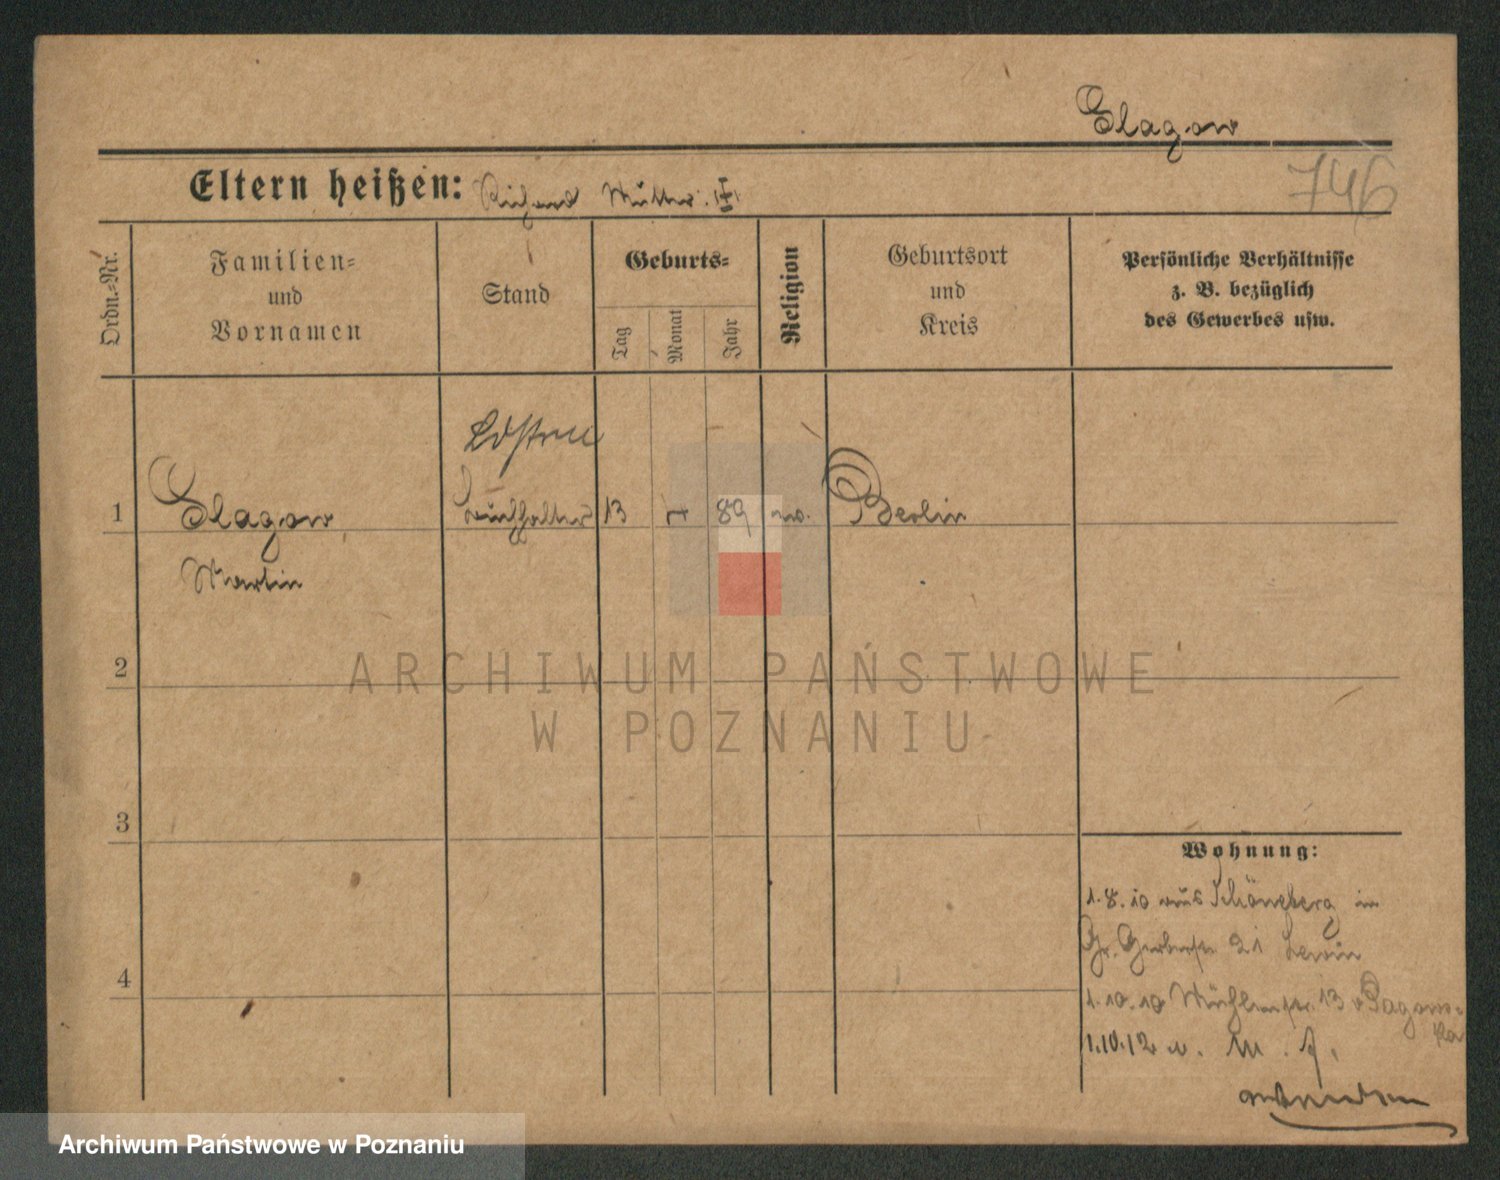 Glagow
746
Eltern heißen: Richard Mutter
Ordn.-Nr.
Familien-
und
Vornamen
Stand
Geburts-
Tag
Monat
Jahr
Religion
Geburtsort
und
Kreis
Persönliche Verhältnisse
z. B. bezüglich
des Gewerbes usw.
1
Glagow
Buchhalter
13
89
Berlin
Martin
2
ARCHIWUM PAŃSTWOWE
W POZNANIU
3
Wohnung:
1.8.10 aus Schöneberg in
Gr. Gerberstr. 21 Lewin
4
1.10.10 Mühlenstr. 13
1.10.12 n.
Archiwum Państwowe w Poznaniu